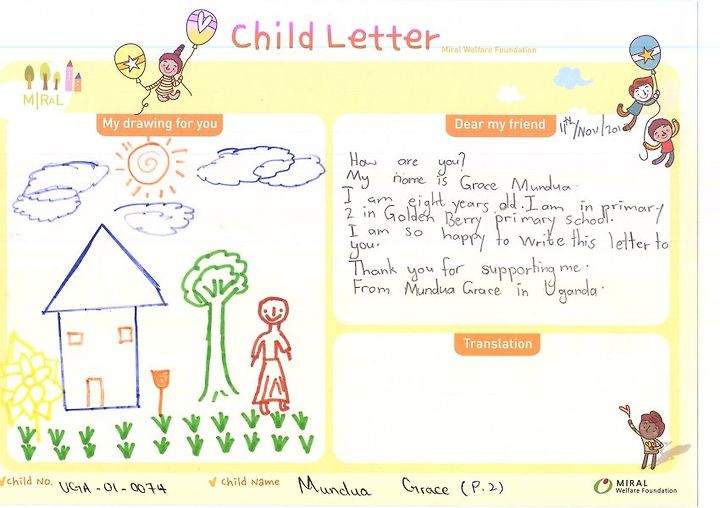 Child Letter
Miral Welfare Foundation
MIRAL
My drawing for you
Dear my friend
11th/Nov/201
How are you?
My name is Grace Mundua.
I am eight years old. I am in primary
2 in Golden Berry primary school.
I am so happy to write this letter to
you.
Thank you for supporting me.
From Mundua Grace in Uganda.
Translation
Child No. UGA-01-0074
Child Name Mundua Grace (P.2)
MIRAL
Welfare Foundation